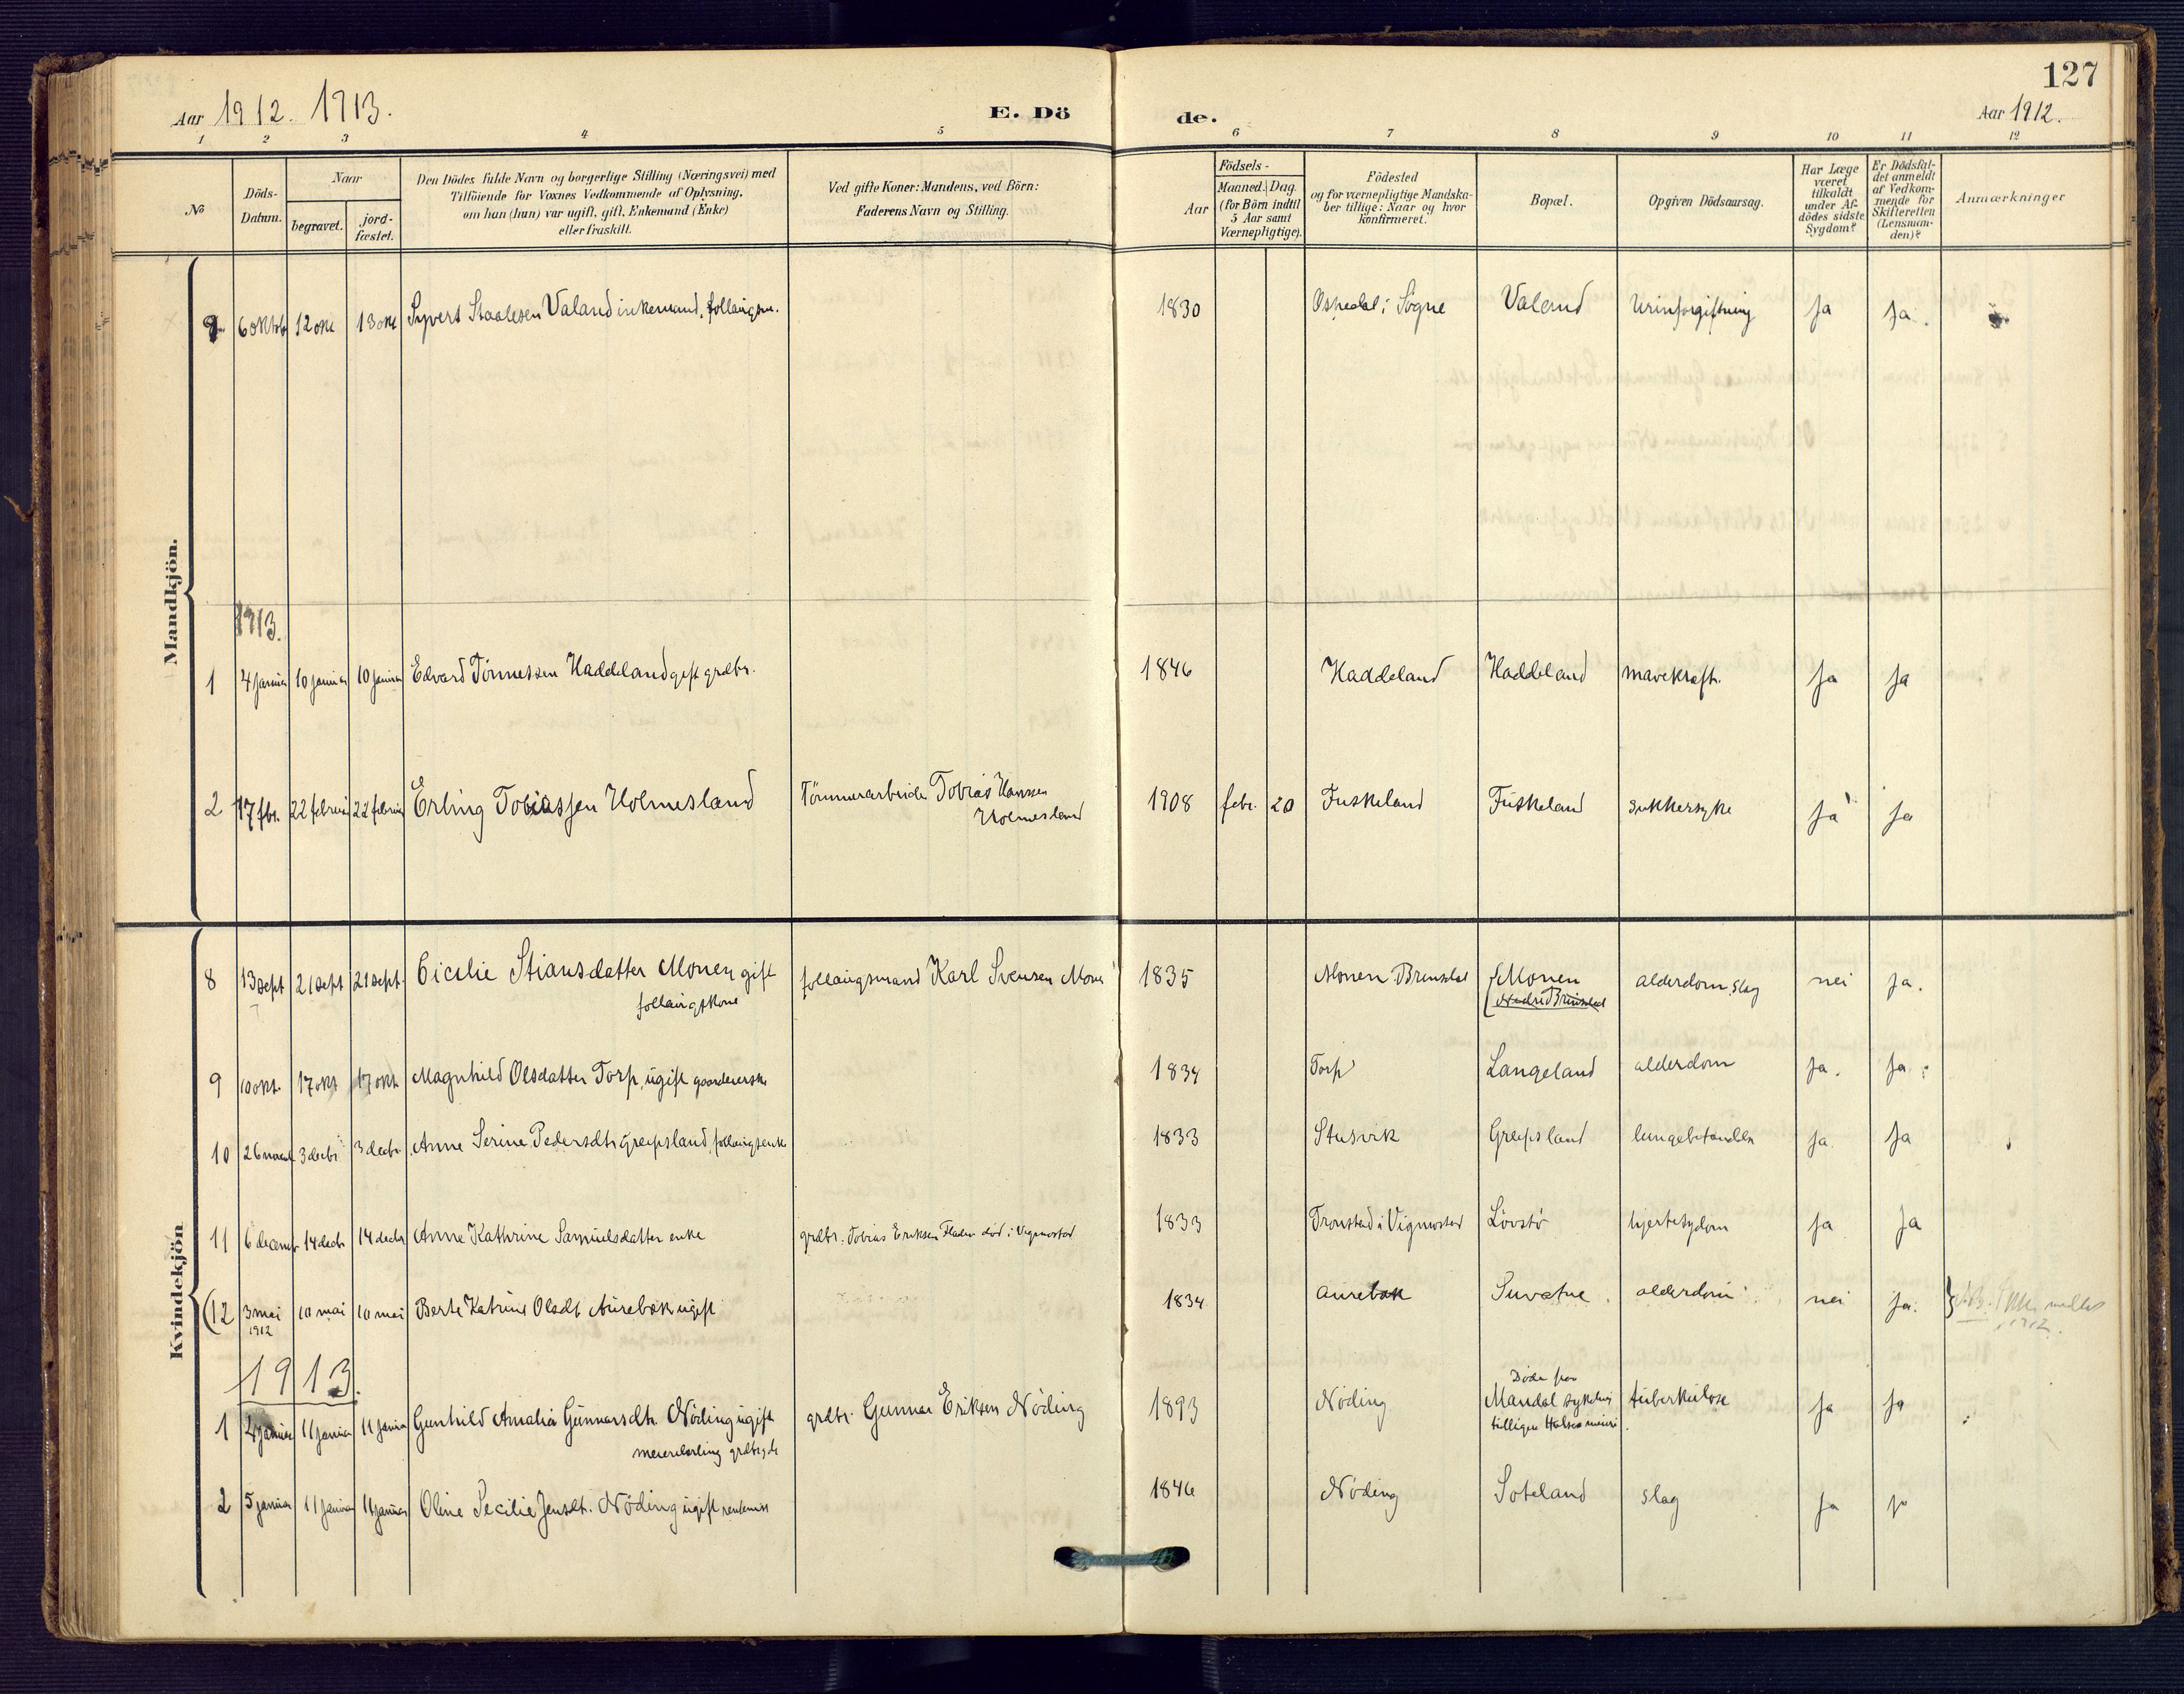 127
Aar 1912. 1913. E. Dö de. Aar 1912.
1 2 3 4 5 6 7 8 9 10 11 12
No
Döds-Datum.
Naar
begravet.
jord-fæstet.
Den Dödes fulde Navn og borgerlige Stilling (Næringsvei) med
Tilföiende for Voxnes Vedkommende af Oplysning,
om han (hun) var ugift, gift, Enkemand (Enke)
eller fraskilt.
Ved gifte Koner: Mandens, ved Börn:
Faderens Navn og Stilling.
Födsels-
Aar
Maaned. Dag.
(for Börn indtil
5 Aar samt
Værnepligtige).
Födested
og for værnepligtige Mandska-
ber tillige: Naar og hvor
konfirmeret.
Bopæl.
Opgiven Dödsaarsag.
Har Læge
været
tilkaldt
under Af-
dödes sidste
Sygdom?
Er Dödsfal-
det anmeldt
af Vedkom-
mende for
Skifteretten
(Lensman-
den)?
Anmærkninger
Mandkjön.
9 6 oktob 12 okt 13 okt Syvert Staalesen Valand enkemand, follaugsm. 1830 Ospedal i Sögne Valand Urinforgiftning ja ja.
1913.
1 4 januar 10 januar 10 januar Edvard Tönnessen Haddeland gift grdbr. 1846 Haddeland Haddeland mavekræft. ja ja
2 17 fbr. 22 februar 22 februar Erling Tobiassen Holmesland Tömmerarbeider Tobias Hanssen
Holmesland 1908 febr. 20 Fuskeland Fuskeland sukkersyke ja ja
Kvindekjön
8 13 sept 21 sept 21 sept. Cicilie Stiansdatter Monen gift
follaugskone follaugsmand Karl Svensen Monen 1835 Monen Brinsdal Monen
Nedre Brinsdal alderdom, slag nei ja.
9 10 okt. 17 okt 17 okt. Magnhild Olsdatter Torp, ugift 1834 Torp Langeland alderdom ja. ja.
10 26 novemb 3 decbr 3 decbr. Anne Serine Pedersdtr Greipsland, follaugsenke 1833 Stusvik Greipsland lungebetændelse ja. ja
11 6 decemb 14 decbr 14 decbr Anne Kathrine Samuelsdatter enke grdbr. Tobias Eriksen död i Vigmostad 1833 Tronstad i Vigmostad Lövstö hjertesydom ja ja
(12 3 mai
1912 10 mai 10 mai Berte Katrine Olsdt. Aurebæk ugift 1834 Aurebæk Suvatne alderdom nei ja.
1912.
1913.
1 4 januar 11 januar 11 januar Gunhild Amalia Gunnarsdtr. Nöding ugift
grdbr. Gunnar Eriksen Nöding 1893 Nöding Döde paa
Mandal sykehus tuberkulose ja ja
2 5 januar 11 januar 11 januar Oline Secilie Jensdt. Nöding ugift 1846 Nöding Soteland slag ja ja